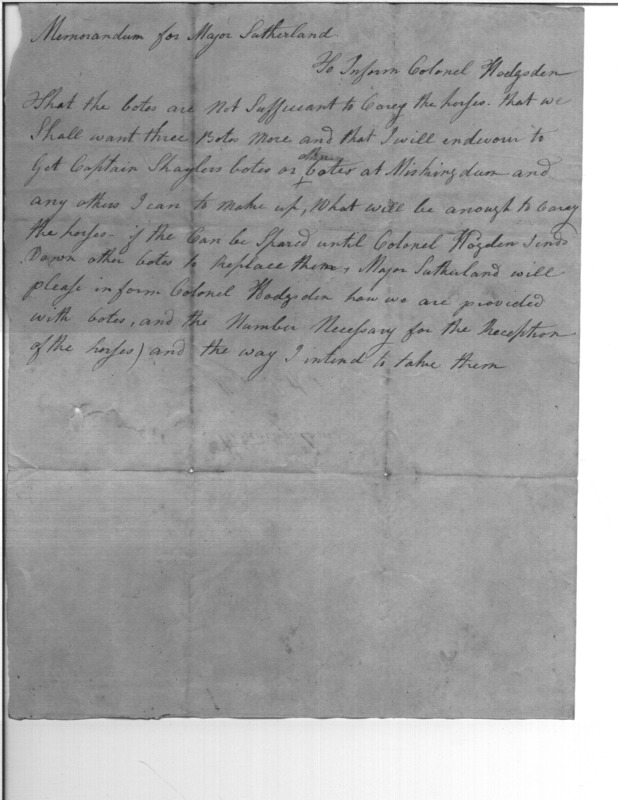 Memorandum for Major Sutherland
To Inform Colonel Hodgsden
that the botes are Not Suffucant to Carey the horses. that we
Shall want three Botes More and that I will endevour to
Get Captain Shaylers botes or other botes at Miskingdum and
any others I can to make up, What will be anough to Carey
the horses - if the Can be Spared until Colonel Hogden Sends
Down other botes to Replace them, Major Sutherland will
please inform Colonel Hodgsden how we are provided
with botes, and the Number Necessary for the Reception
of the horses) and the way I intend to take them